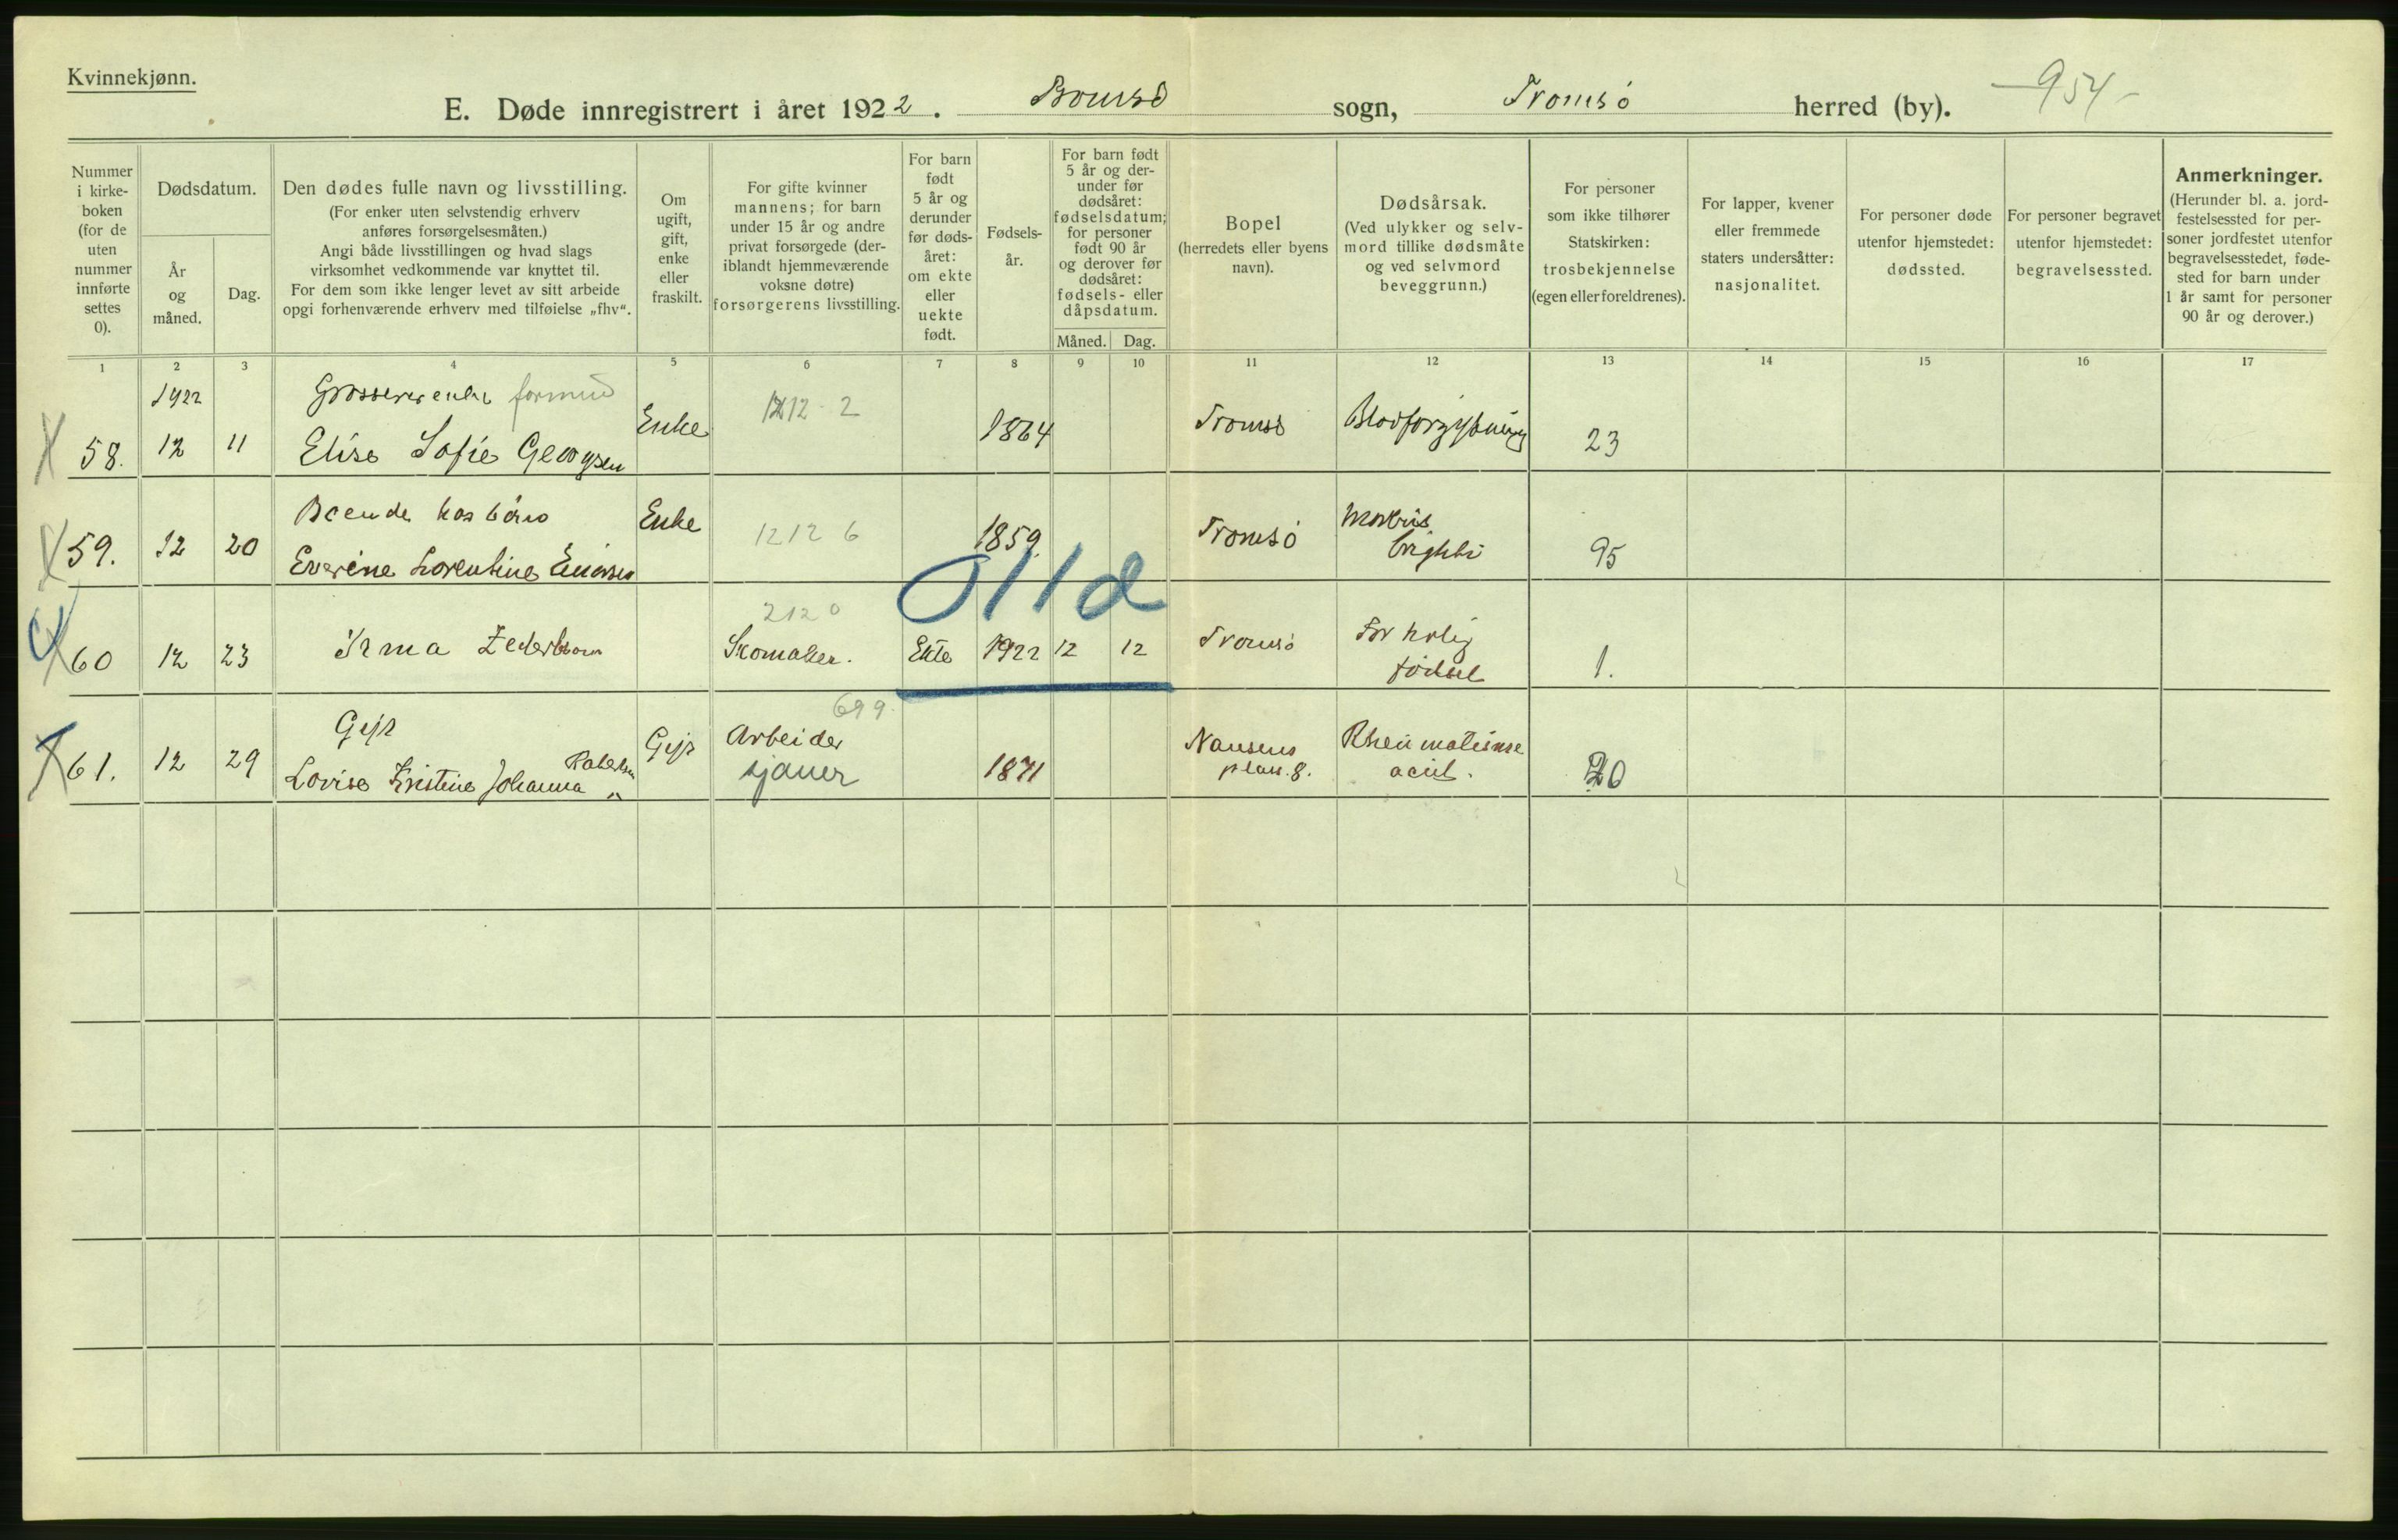 Kvinnekjønn.
E. Døde innregistrert i året 1922. Tromsø sogn, Tromsø herred (by). -954-
Nummer i kirkeboken (for de uten nummer innførte settes 0).
Dødsdatum.
År og måned.
Dag.
Den dødes fulle navn og livsstilling.
(For enker uten selvstendig erhverv anføres forsørgelsesmåten.)
Angi både livsstillingen og hvad slags virksomhet vedkommende var knyttet til.
For dem som ikke lenger levet av sitt arbeide opgi forhenværende erhverv med tilføielse „fhv“.
Om ugift, gift, enke eller fraskilt.
For gifte kvinner mannens; for barn under 15 år og andre privat forsørgede (deriblandt hjemmeværende voksne døtre) forsørgerens livsstilling.
For barn født 5 år og derunder før dødsåret: om ekte eller uekte født.
Fødselsår.
For barn født 5 år og derunder før dødsåret: fødselsdatum; for personer født 90 år og derover før dødsåret: fødsels- eller dåpsdatum.
Måned. Dag.
Bopel
(herredets eller byens navn).
Dødsårsak.
(Ved ulykker og selvmord tillike dødsmåte og ved selvmord beveggrunn.)
For personer som ikke tilhører Statskirken: trosbekjennelse (egen eller foreldrenes).
For lapper, kvener eller fremmede staters undersåtter: nasjonalitet.
For personer døde utenfor hjemstedet: dødssted.
For personer begravet utenfor hjemstedet: begravelsessted.
Anmerkninger.
(Herunder bl. a. jordfestelsessted for personer jordfestet utenfor begravelsesstedet, fødested for barn under 1 år samt for personer 90 år og derover.)
1 2 3 4 5 6 7 8 9 10 11 12 13 14 15 16 17
1922 Grossererenke formue
X 58. 12 11 Elise Sofie Georgsen Enke 1212-2 1864 Tromsø Blodforgiftning 23
Boende hos børn
X 59. 12 20 Everine Lorentine Einarsen Enke 1212 6 1859. Tromsø Morbus brighti 95
011d
212 0
X 60 12 23 Irma Zederblom Skomaker. Ekte 1922 12 12 Tromsø For tidlig fødsel 1.
699.
Gift
X 61. 12 29 Lovise Kristine Johanna Robertsen Gift Arbeider sjauer 1871 Nansens plass. 8. Rheumatisme acut. 20